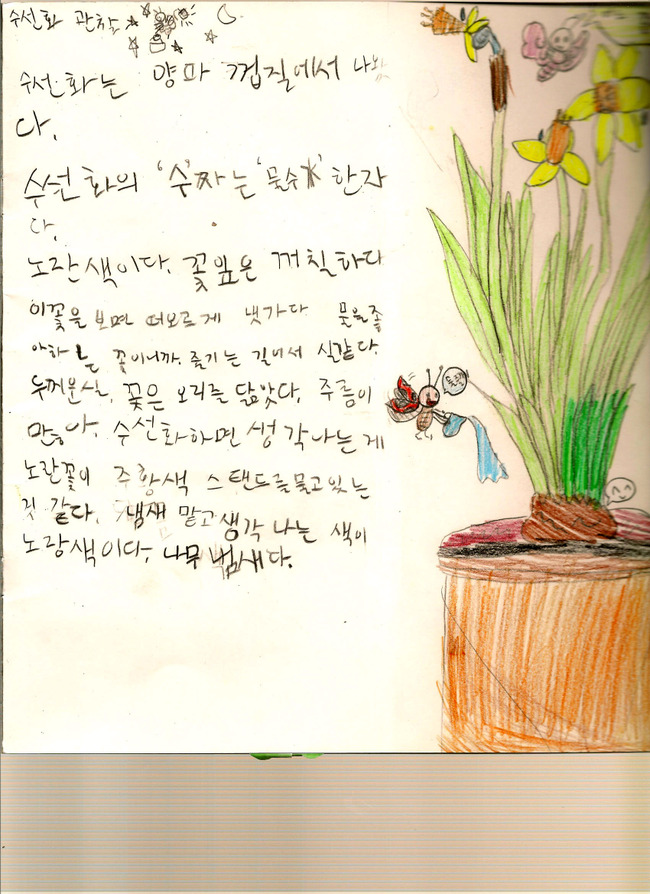 수선화 관찰
수선화는 양파 껍질에서 나왔
다.
수선화의 '수'짜는 '물수水' 한자
다.
노란색이다. 꽃잎은 꺼칠하다
이꽃을 보면 떠오르게 냇가다. 물을좋
아하는 꽃이니까. 줄기는 길어서 실같다.
두꺼운실. 꽃은 오리를 닮았다. 주름이
많다. 수선화하면 생각나는게
노란꽃이 주황색 스탠드를 물고있는
것 같다. 냄새 맡고 생각 나는 색이
노랑색이다. 나무 냄새다.